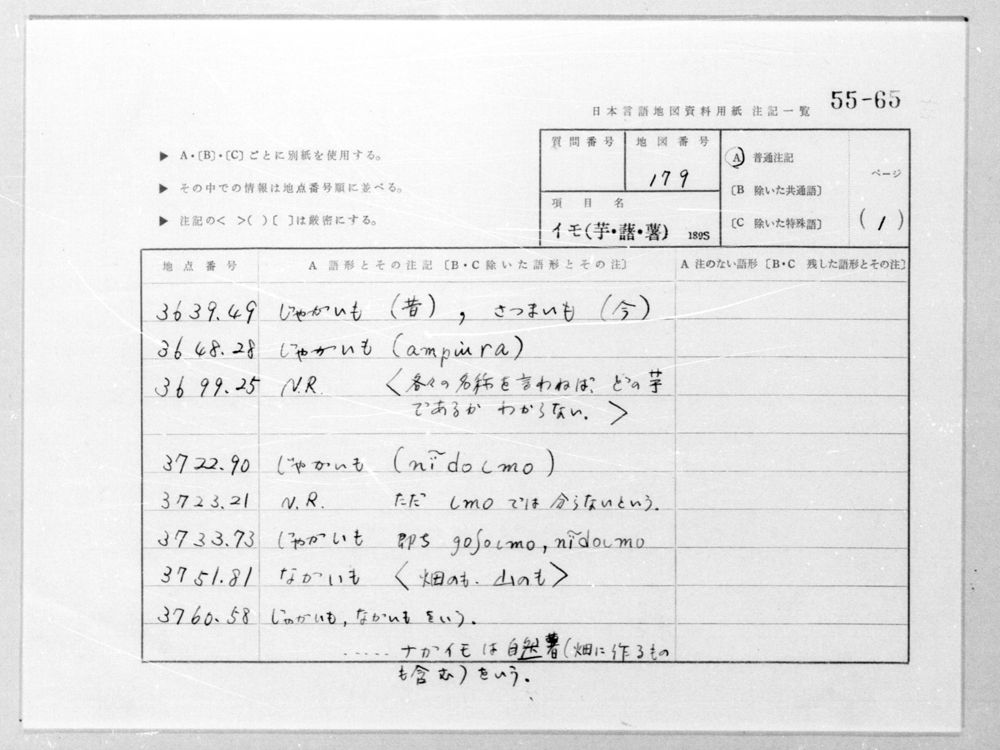 55-65
日本言語地図資料用紙 注記一覧
▶ A・〔B〕・〔C〕ごとに別紙を使用する。
▶ その中での情報は地点番号順に並べる。
▶ 注記の< >( )〔 〕は厳密にする。
質問番号
地図番号
179
項目名
イモ(芋・藷・薯) 189S
A 普通注記
〔B 除いた共通語〕
〔C 除いた特殊語〕
ページ
(1)
地点番号 A 語形とその注記〔B・C 除いた語形とその注〕 A 注のない語形〔B・C 残した語形とその注〕
3639.49 じゃかいも (昔), さつまいも (今)
3648.28 じゃかいも (ampura)
3699.25 N.R. <各々の名称を言わねば、どの芋
であるか わからない.>
3722.90 じゃかいも (nĩdoɩmo)
3723.21 N.R. ただ ɩmo では 分らないという.
3733.73 じゃかいも 即ち goʃoɩmo, nĩdoɩmo
3751.81 なかいも <畑のも、山のも>
3760.58 じゃかいも, なかいもをいう.
..... ナガイモは自然薯(畑に作るもの
も含む)をいう.